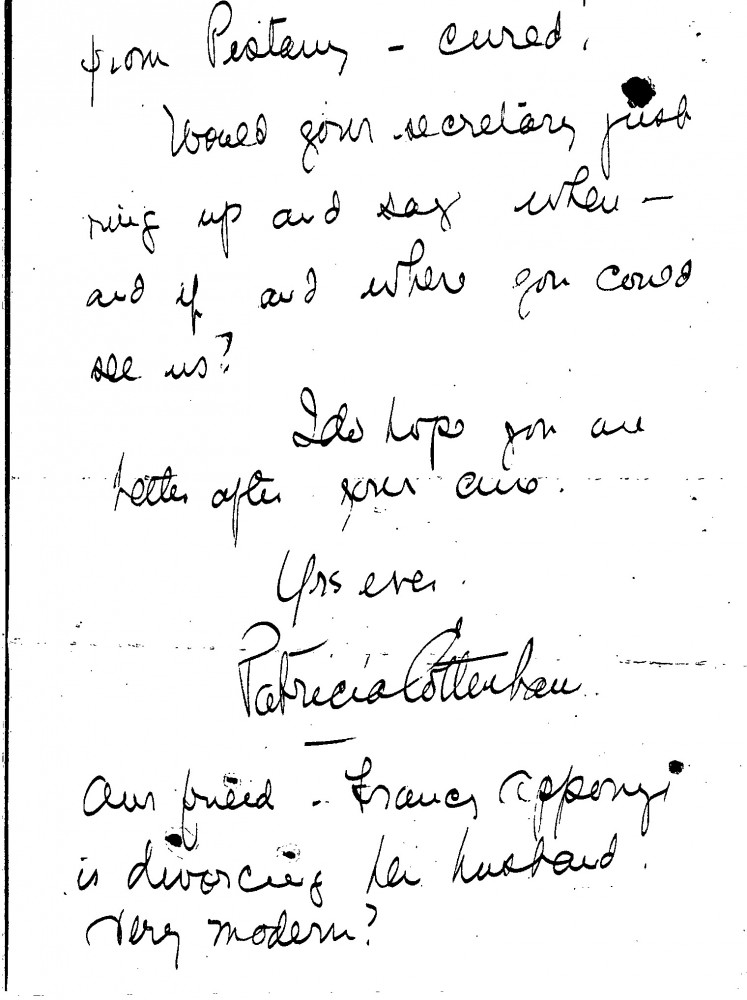 from Pistany - cured!
Would your secretary just
ring up and say when -
and if and where you could
see us?
I do hope you are
better after your cure.
Yrs ever
Patricia Cottenham
Our friend - Francy Apponyi
is divorcing her husband.
Very modern?